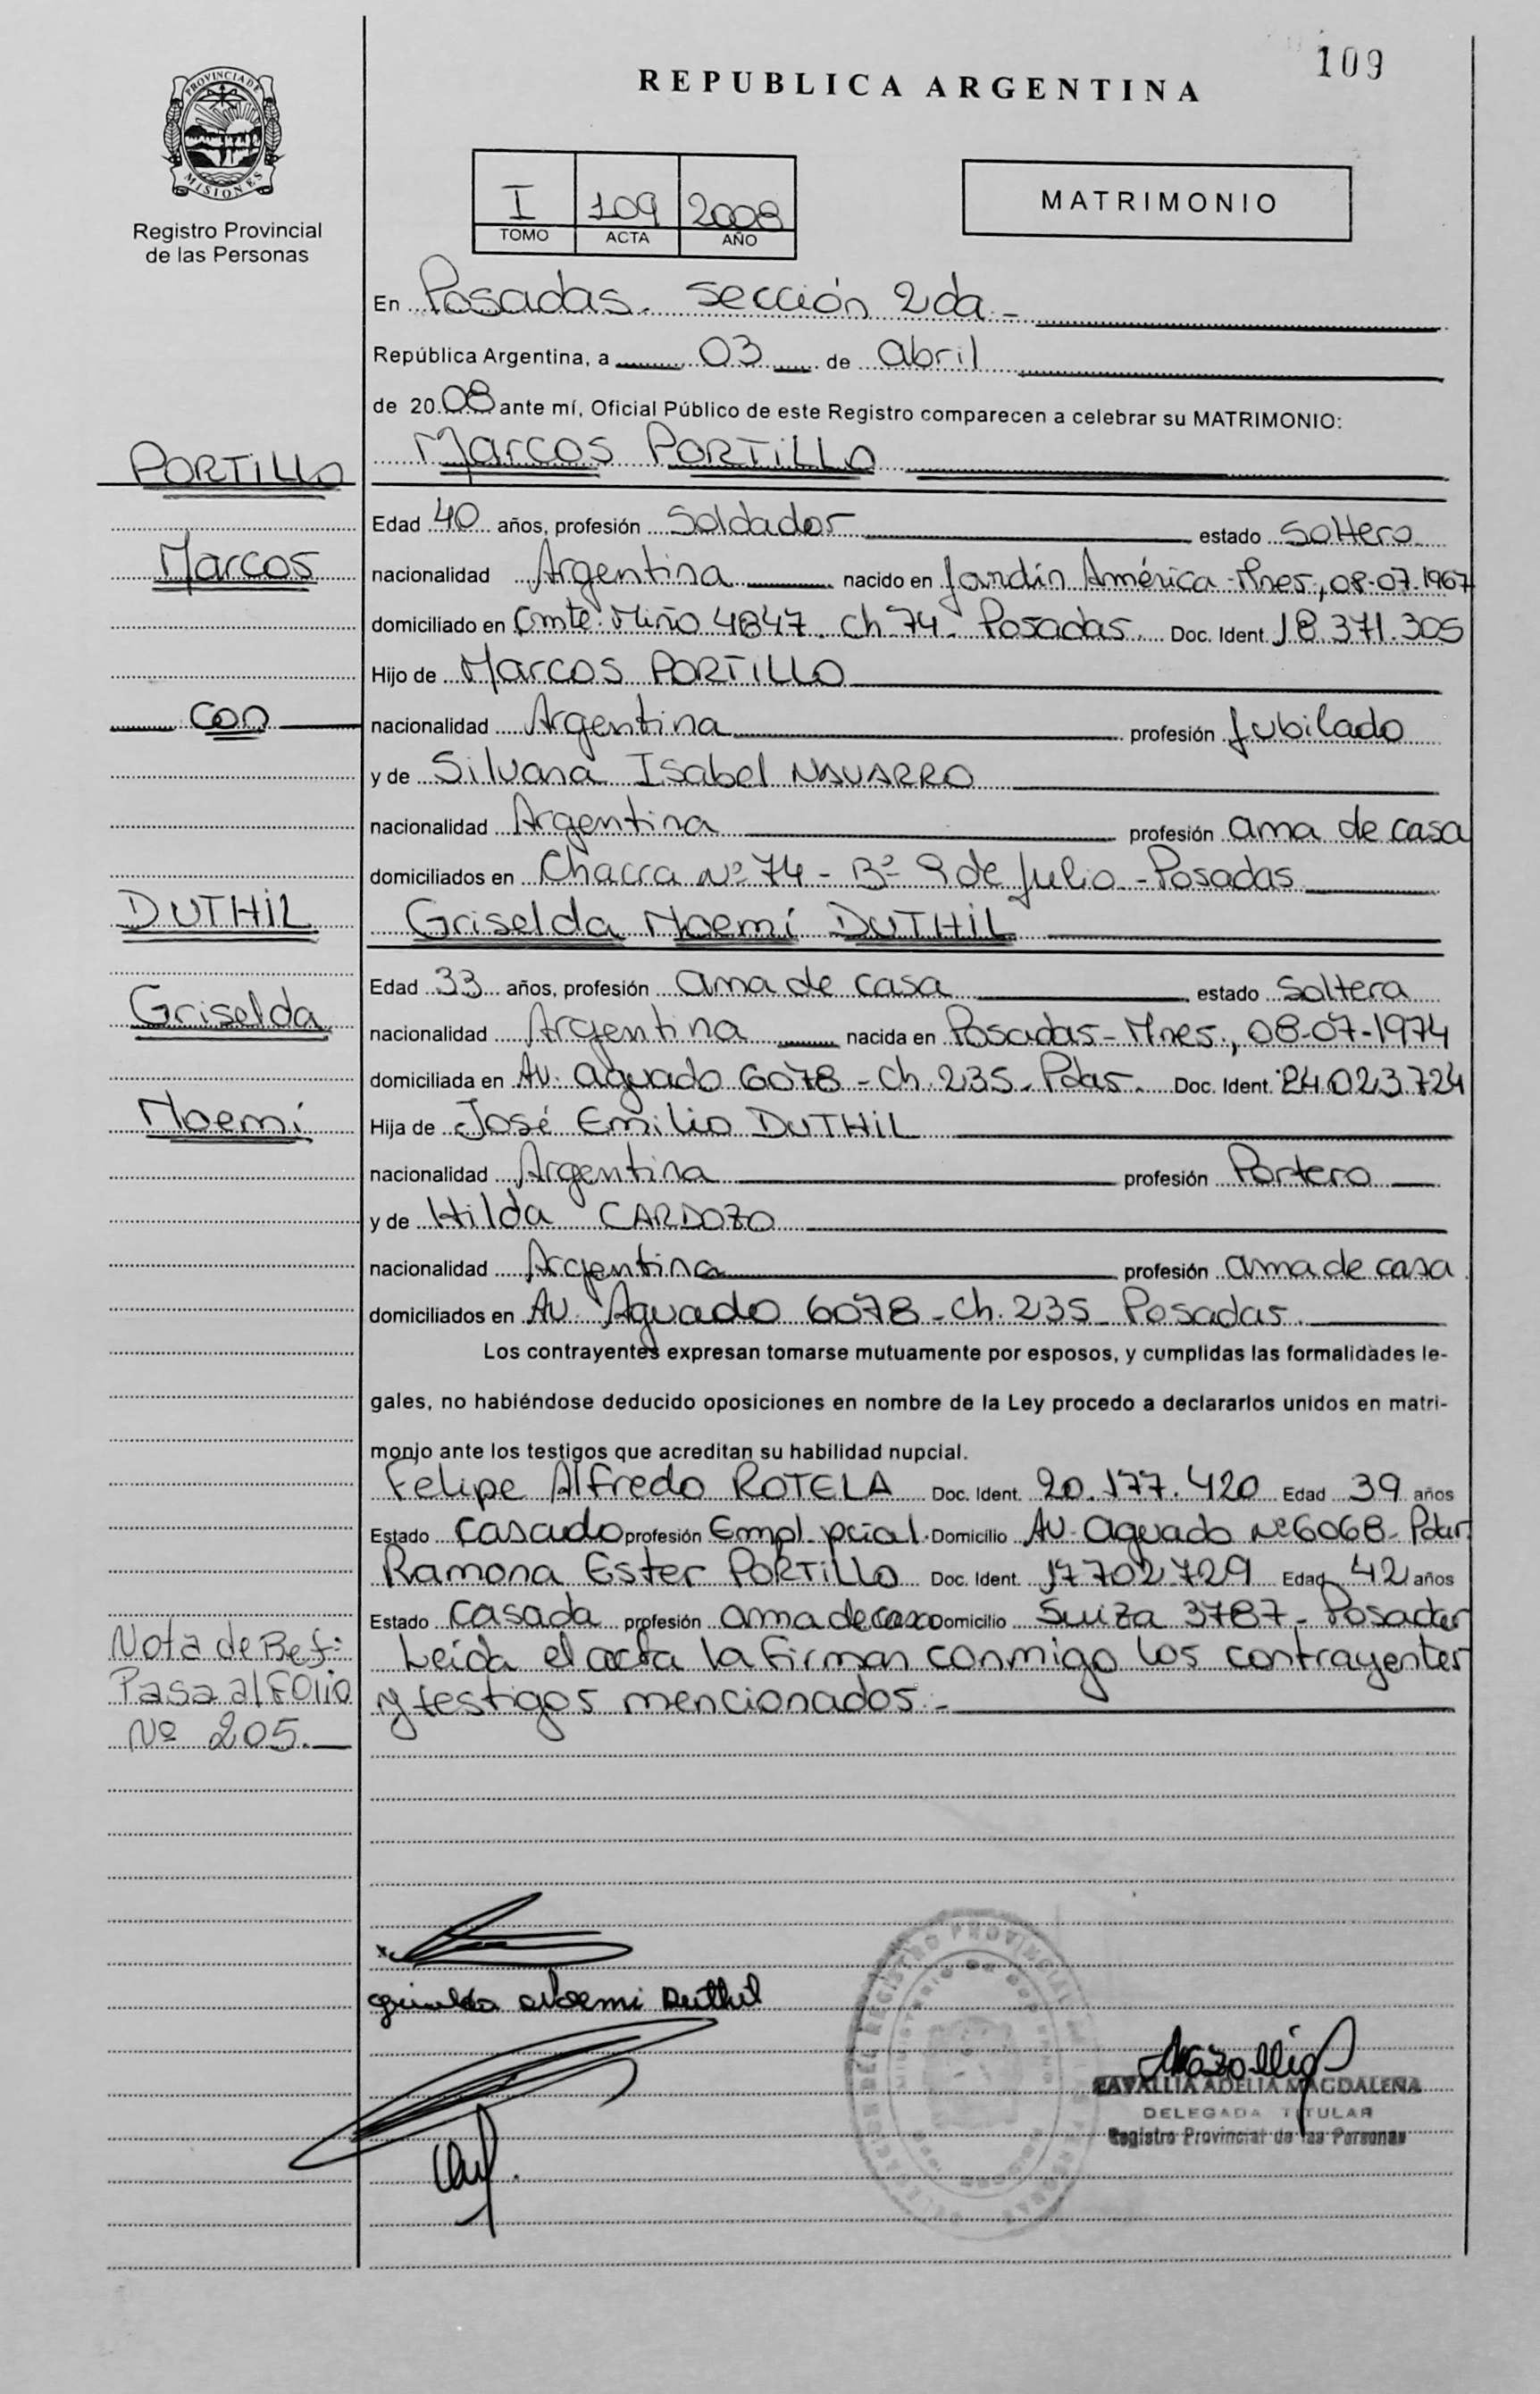 109
REPUBLICA ARGENTINA
PROVINCIA DE
MISIONES
Registro Provincial
de las Personas
I 109 2008
TOMO ACTA AÑO
MATRIMONIO
En Posadas. Sección 2da -
República Argentina, a 03 de abril
de 2008 ante mí, Oficial Público de este Registro comparecen a celebrar su MATRIMONIO:
PORTILLO
Marcos PORTILLO
Edad 40 años, profesión Soldador estado Soltero
Marcos
nacionalidad Argentina nacido en Jardín América - Mnes, 08-07-1967
domiciliado en Cmte. Miño 4847. Ch. 74 - Posadas Doc. Ident. 18.371.305
Hijo de Marcos PORTILLO
con
nacionalidad Argentina profesión Jubilado
y de Silvana Isabel NAVARRO
nacionalidad Argentina profesión ama de casa
domiciliados en Chacra Nº 74 - Bº 9 de Julio - Posadas
DUTHIL
Griselda Noemí DUTHIL
Edad 33 años, profesión ama de casa estado Soltera
Griselda
nacionalidad Argentina nacida en Posadas - Mnes., 08-07-1974
domiciliada en Av. aguado 6078 - Ch. 235 - Pdas. Doc. Ident. 24.023.724
Noemí
Hija de José Emilio DUTHIL
nacionalidad Argentina profesión Portero
y de Hilda CARDOZO
nacionalidad Argentina profesión ama de casa
domiciliados en Av. Aguado 6078 - Ch. 235 - Posadas.
Los contrayentes expresan tomarse mutuamente por esposos, y cumplidas las formalidades le-
gales, no habiéndose deducido oposiciones en nombre de la Ley procedo a declararlos unidos en matri-
monio ante los testigos que acreditan su habilidad nupcial.
Felipe Alfredo ROTELA Doc. Ident. 20.177.420 Edad 39 años
Estado casado profesión Empl. pcial. Domicilio Av. aguado Nº 6068 - Pdas
Ramona Ester PORTILLO Doc. Ident. 17.702.729 Edad 42 años
Estado casada profesión ama de casa Domicilio Suiza 3787 - Posadas
Leída el acta la firman conmigo los contrayentes
y testigos mencionados. -
Nota de Ref:
Pasa al Folio
Nº 205.
Griselda Noemi Duthil
ZAVALLIA ADELIA MAGDALENA
DELEGADA TITULAR
Registro Provincial de las Personas